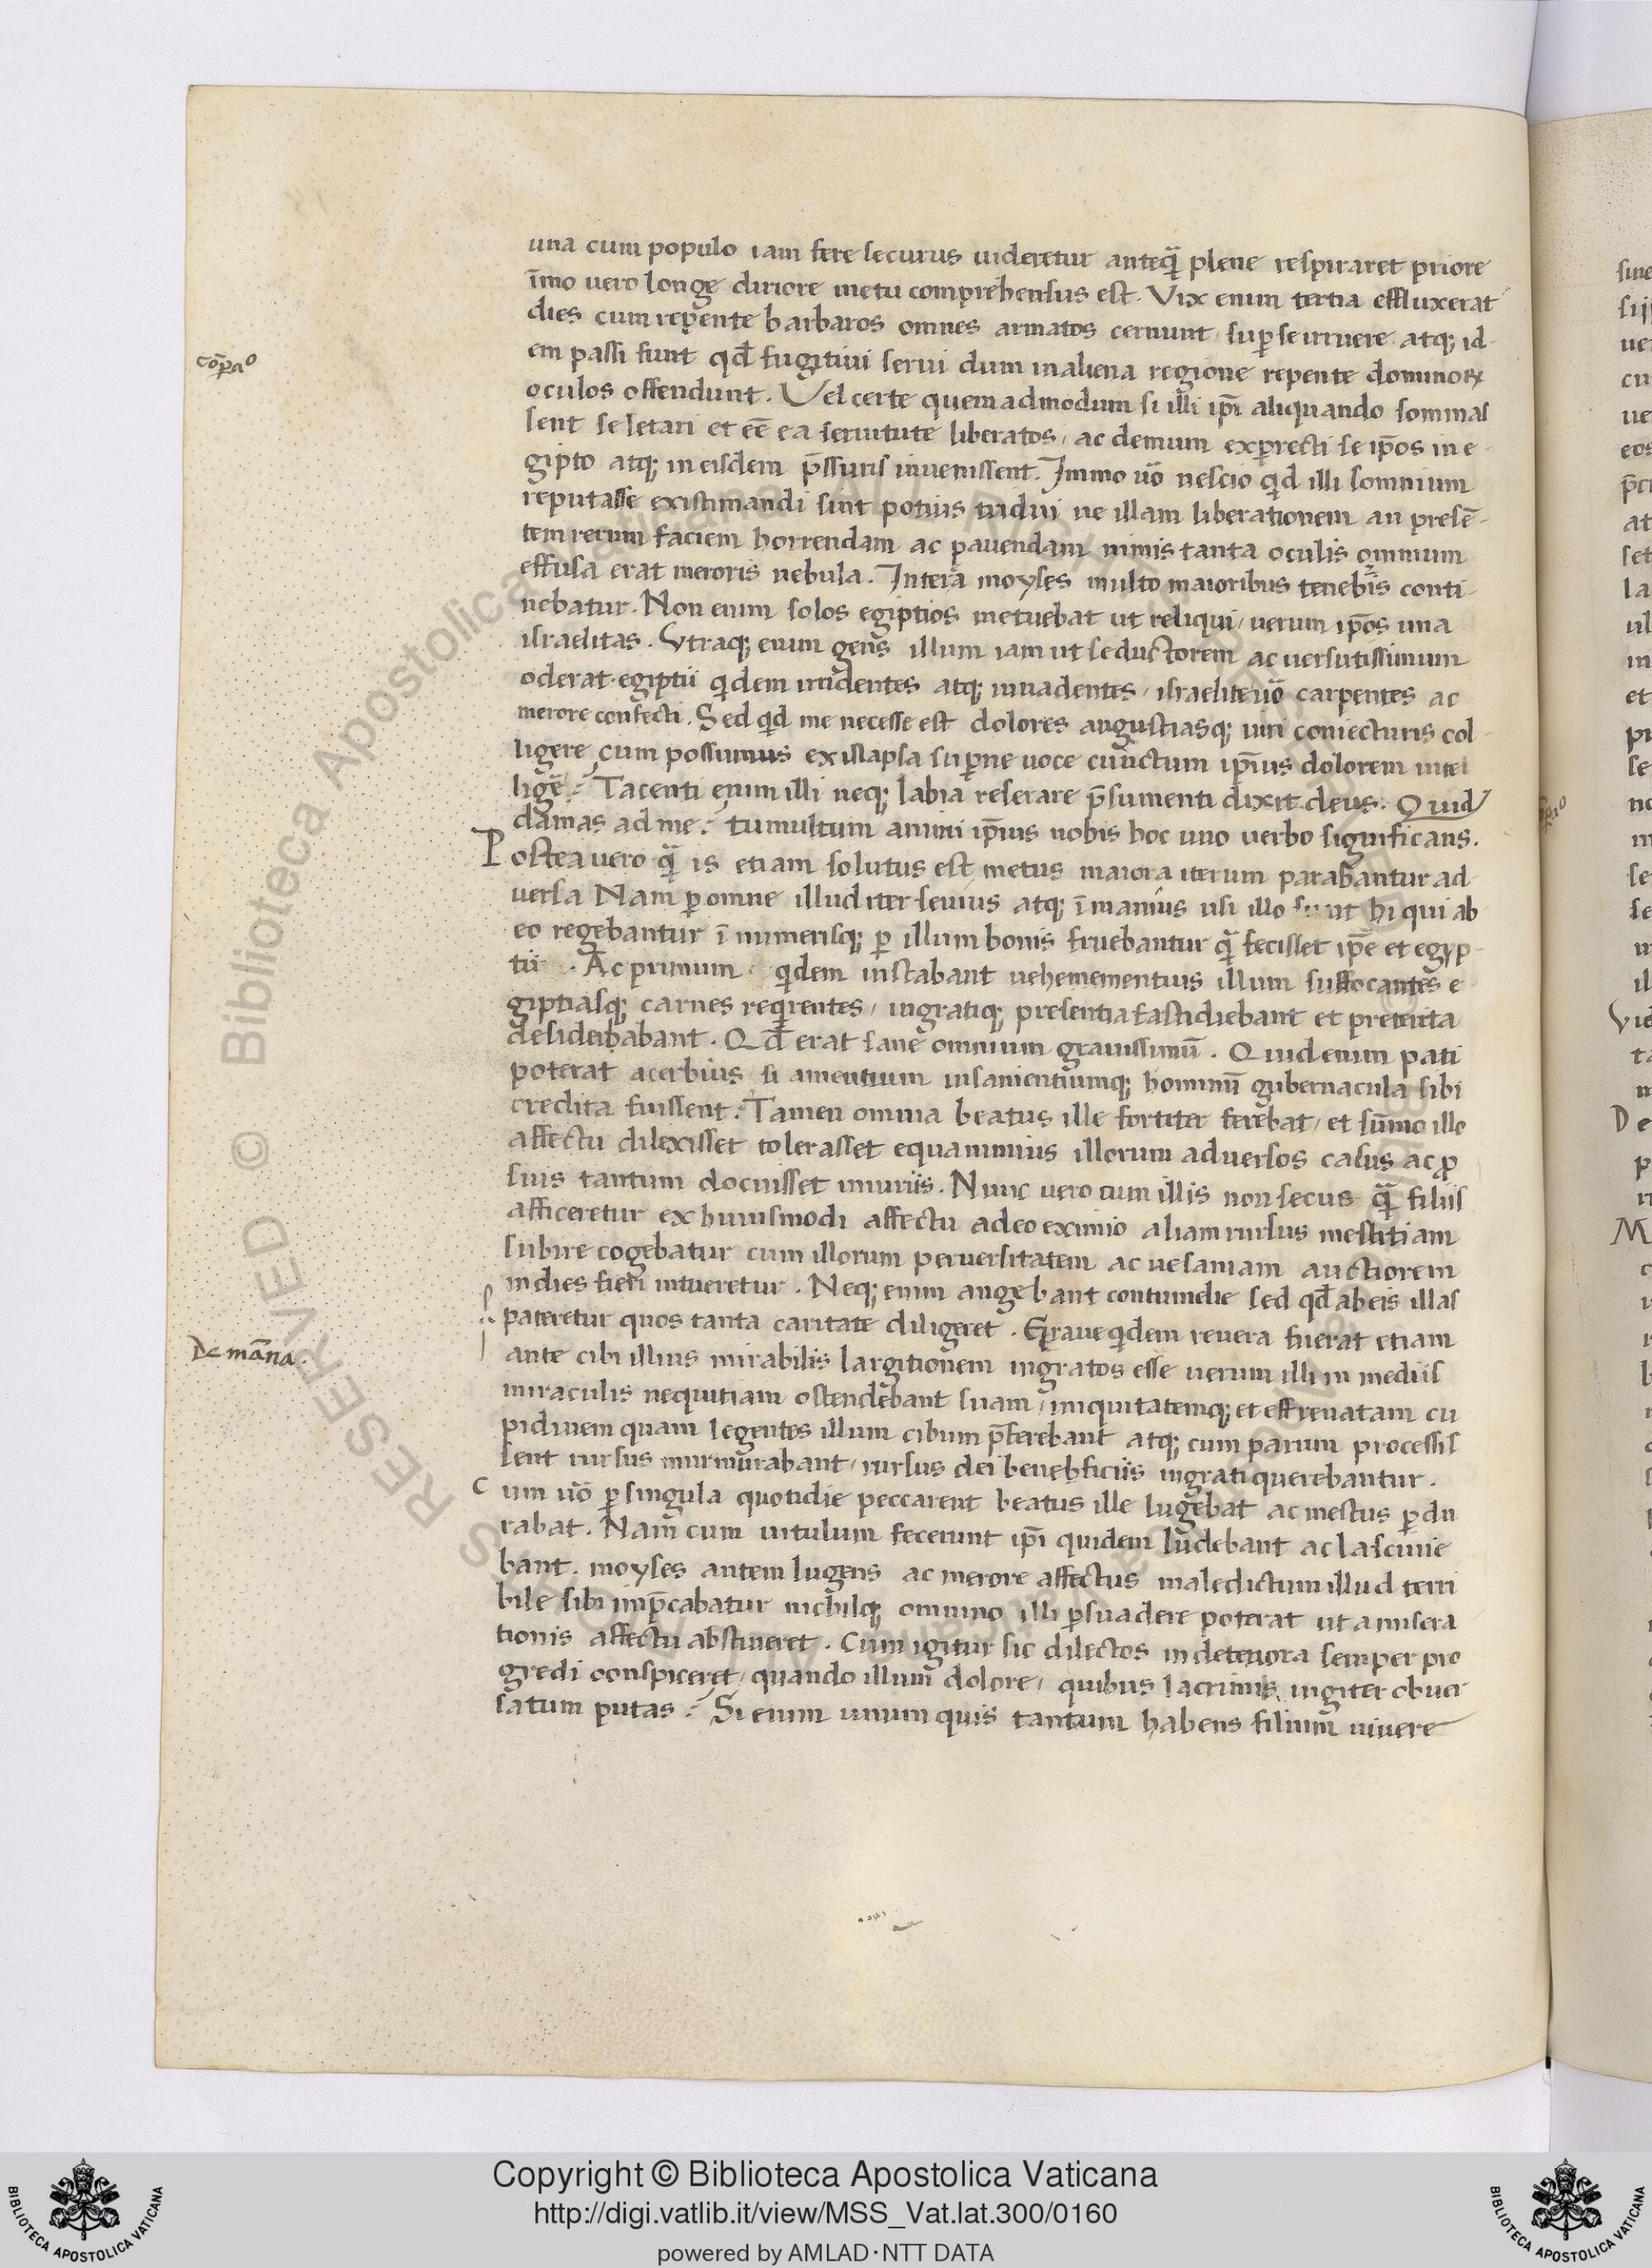 una cum populo iam fere securus uideretur anteq̃ plene respiraret priore
īmo uero longe diriore metu comprehensus est. Vix enim tertia effluxerat
dies cum repente barbaros omnes armatos cernunt sup̱ se irruere atq; id-
cōp̱aᵒ
em passi sunt qd̄ fugitiui serui dum in aliena regione repente dominoꝝ
oculos offendunt. Vel certe quemadmodum si illi ip̄i aliquando somnias
sent se letari et eē ea seruitute liberatos, ac demum exp̱recti se ip̄os in e
gipto atq; in eisdem p̄ssuris inuenissent. Immo uō nescio qd illi somnium
reputasse existimandi sint potius tridui ne illam liberationem an presē-
tem rerum faciem horrendam ac pauendam nimis tanta oculis omnium
effusa erat meroris nebula. Interā moyses multo maioribus tenebris conti-
nebatur. Non enim solos egiptios metuebat ut reliqui, uerum ip̄os una
israelitas. Vtraq; enim gens illum iam ut seductorem ac uersutissimum
oderat. egiptii qdem irridentes atq; inuadentes, israelite uō carpentes ac
merore confecti. Sed qd me necesse est dolores angustiasq; uiri coniecturis col-
ligere cum possumus ex illapsa sup̱ne uoce cunctum ip̄ius dolorem intel
ligē? Tacenti enim illi neq; labia reserare p̄sumenti dixit deus. Quid
clamas ad me? tumultum animi ip̄ius nobis hoc uno uerbo significans.
Postea uero q̃ is etiam solutus est metus maiora iterum parabantur ad
uersa Nam p̱ omne illud iter seuius atq; īmanius usi illo sunt hi qui ab
eo regebantur īnumerisq; p̱ illum bonis fruebantur q̃ fecisset ip̄e et egyp-
tii. Ac primum qdem instabant uehemementius illum suffocantes e
giptiasq; carnes reqrentes, ingratiq; presentia fastidiebant et preterita
desiderbabant. Qd̄ erat sane omnium grauissimū. Quid enim pati
poterat acerbius si amentium insanientiumq; hominū gubernacula sibi
credita fuissent. Tamen omnia beatus ille fortiter ferebat, et sūmo illo
affectu dilexisset tolerasset equanimius illorum aduersos casus ac ꝓ
suis tantum docuisset iniuriis. Nunc uero cum illis non secus q̃ filiis
afficeretur ex huiusmodi affectu adeo eximio aliam rursus mestitiam
subire cogebatur cum illorum peruersitatem ac uesaniam auctiorem
indies fieri intueretur. Neq; enim angebant contumelie sed qd̄ ab eis illas
pateretur quos tanta caritate diligeret. Graue qdem reuera fuerat etiam
De māna.
ante cibi illius mirabilis largitionem ingratos esse uerum illi in mediis
miraculis nequitiam ostendebant suam, iniquitatemq; et effrenatam cu
pidinem quam legentes illum cibum p̄ferebant atq; cum parum processis
sent rursus murmurabant, rursus dei benebficiis ingrati querebantur.
Cum uō p̱ singula quotidie peccarent beatus ille lugebat ac mestus p̱du
rabat. Nam cum uitulum fecerunt ip̄i quidem ludebant ac lasciuie
bant. moyses autem lugens ac merore affectus maledictum illud terri
bile sibi imp̄cabatur nichilq; omnino illi p̱suadere poterat ut a misera
tionis affectu abstineret. Cum igitur sic dilectos in deteriora semper pro
gredi conspiceret, quando illum dolore, quibus lacrimis iugiter obuer
satum putas? Si enim unum quis tantum habens filium uiuere
Copyright © Biblioteca Apostolica Vaticana
http://digi.vatlib.it/view/MSS_Vat.lat.300/0160
powered by AMLAD·NTT DATA